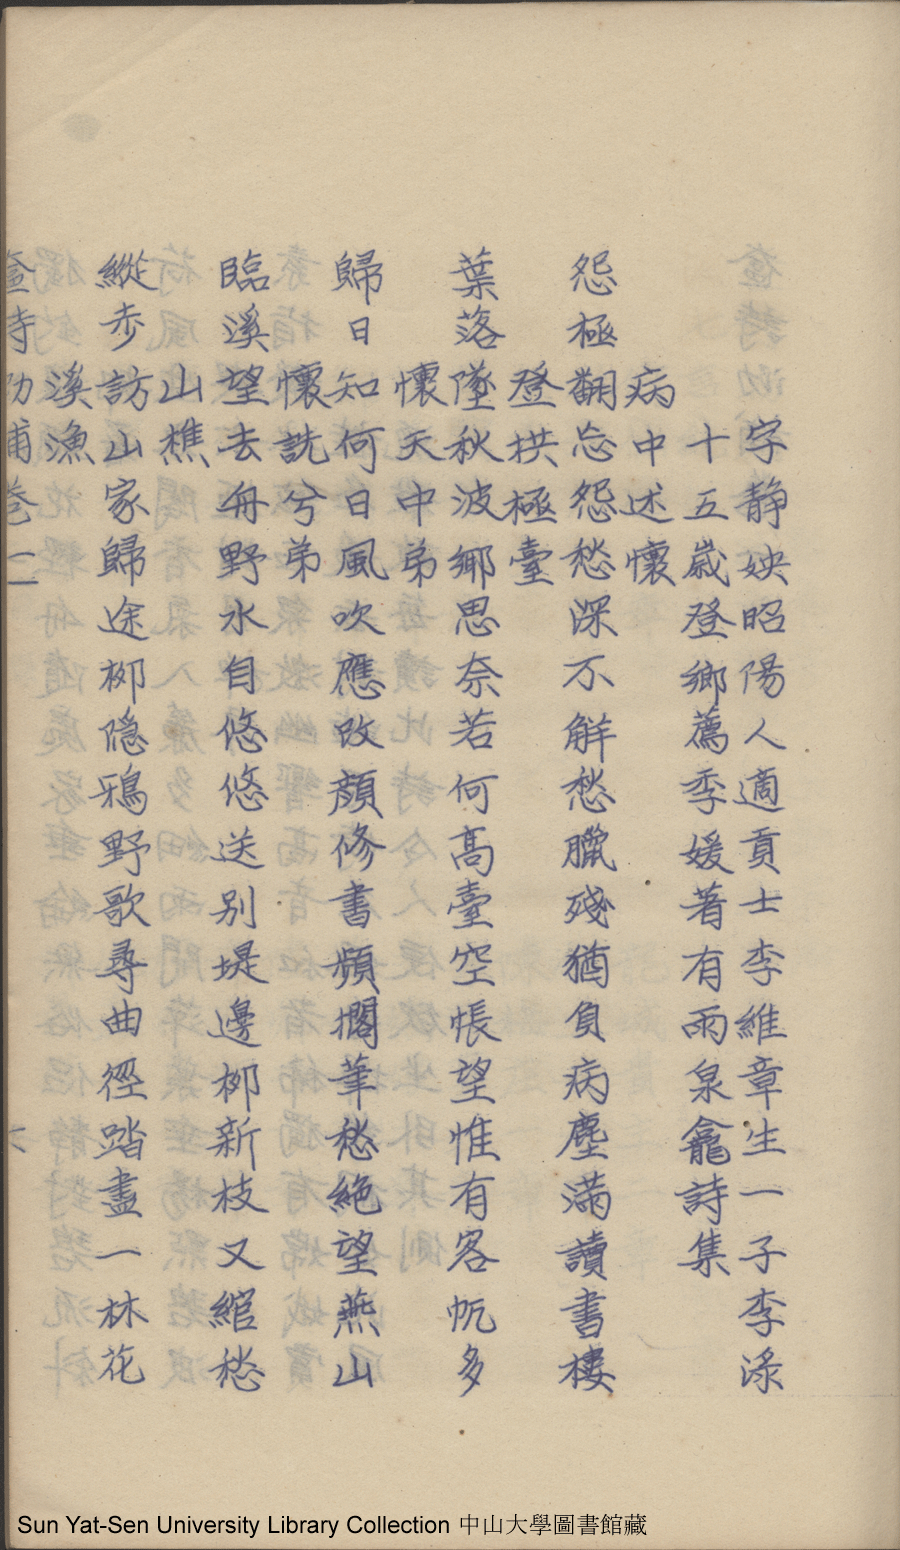 字静姎昭陽人適貢士李維章生一子李淥
十五嵗登鄉薦季媛著有雨泉龕詩集
病中述懷
怨極翻忘怨愁深不解愁臘殘猶負病塵滿讀書樓
登拱極臺
葉落墜秋波鄉思奈若何高臺空悵望惟有客帆多
懷天中弟
歸日知何日風吹應改顔修書頻擱筆愁絕望燕山
懷詵兮弟
臨溪望去舟野水自悠悠送别堤邊栁新枝又綰愁
山樵
縱步訪山家歸途栁隠鴉野歌尋曲徑踏盡一林花
溪漁
奩詩泐補卷二 六
Sun Yat-Sen University Library Collection 中山大學圖書館藏